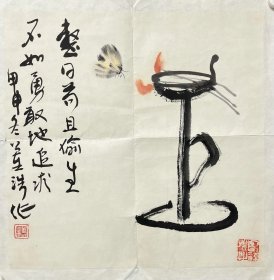 整日苟且偷生
不如勇敢地追求
甲申冬董浩作